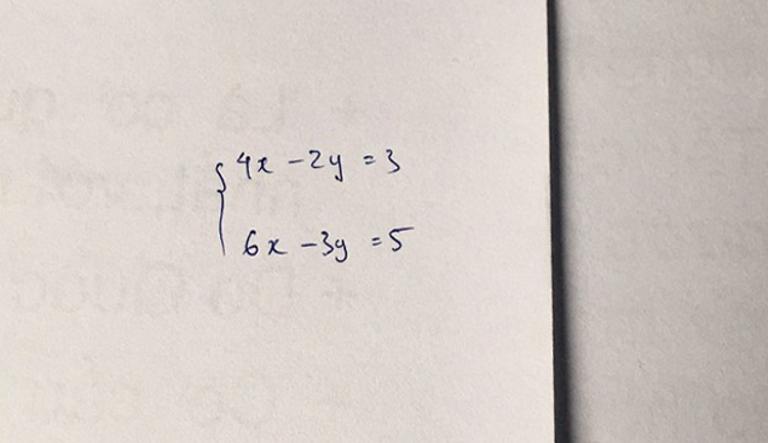 4x - 2y = 3
6x - 3y = 5